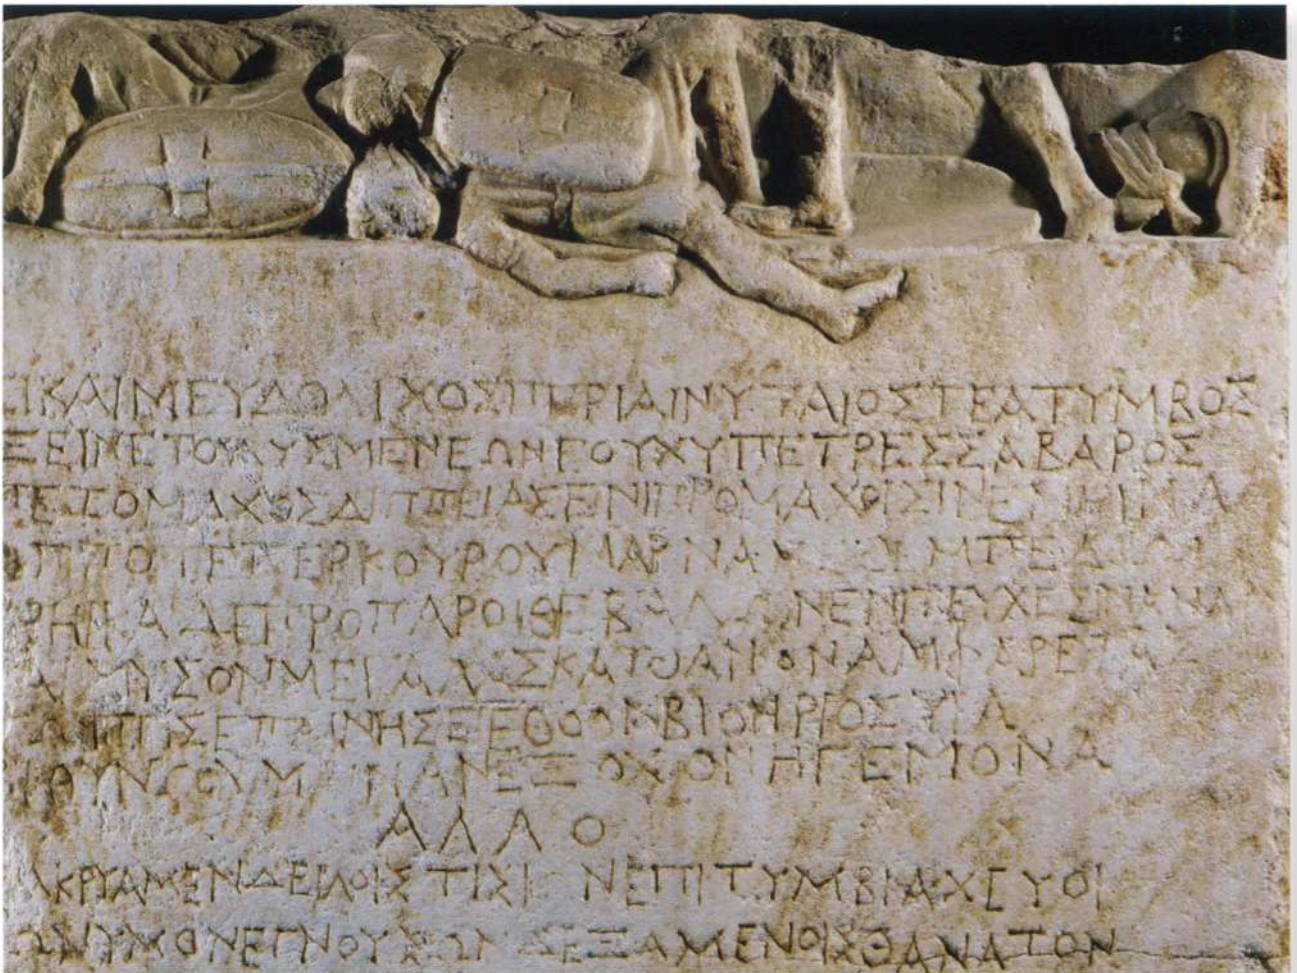 ΕΙΚΑΙΜΕΥΔΟΛΙΧΟΣΠΕΡΙΑΙΝΥΤΑΙΟΣΤΕΑΤΥΜΒΟΣ
ΞΕΙΝΕΤΟΔΥΣΜΕΝΕΩΝΓΟΥΧΥΠΕΤΡΕΣΣΑΒΑΡΟΣ
ΠΕΖΟΜΑΧΟΣΔΙΠΠΕΙΑΣΕΝΙΠΡΟΜΑΧΟΙΣΙΝΕΜΕΙΝΑ
ΟΠΠΟΤΕΠΕΡΚΟΥΡΟΥΜΑΡΝΑΜΕΘΕΜΠΕΔΙΩΙ
ΘΡΗΙΚΑΔΕΠΡΟΠΑΡΟΙΘΕΒΑΛΩΝΕΝΙΤΕΥΧΕΣΙΝΑΝΔΡΑ
ΚΑΙΜΥΣΟΝΜΕΓΑΛΑΣΚΑΤΘΑΝΟΝΑΜΦΑΡΕΤΑΣ
ΤΩΙΤΙΣΕΠΑΙΝΗΣΕΙΕΘΟΟΝΒΙΟΗΡΙΟΣΥΙΑ
ΒΙΘΥΝΟΝΜΗΝΑΝΕΞΟΧΟΝΗΓΕΜΟΝΑ
ΑΛΛΟ
ΔΑΚΡΥΑΜΕΝΔΕΙΛΟΙΣΤΙΣΙΩΝΕΠΙΤΥΜΒΙΑΧΕΥΟΙ
ΝΩΝΥΜΟΝΕΓΝΟΥΣΩΝΔΕΞΑΜΕΝΟΙΣΘΑΝΑΤΟΝ